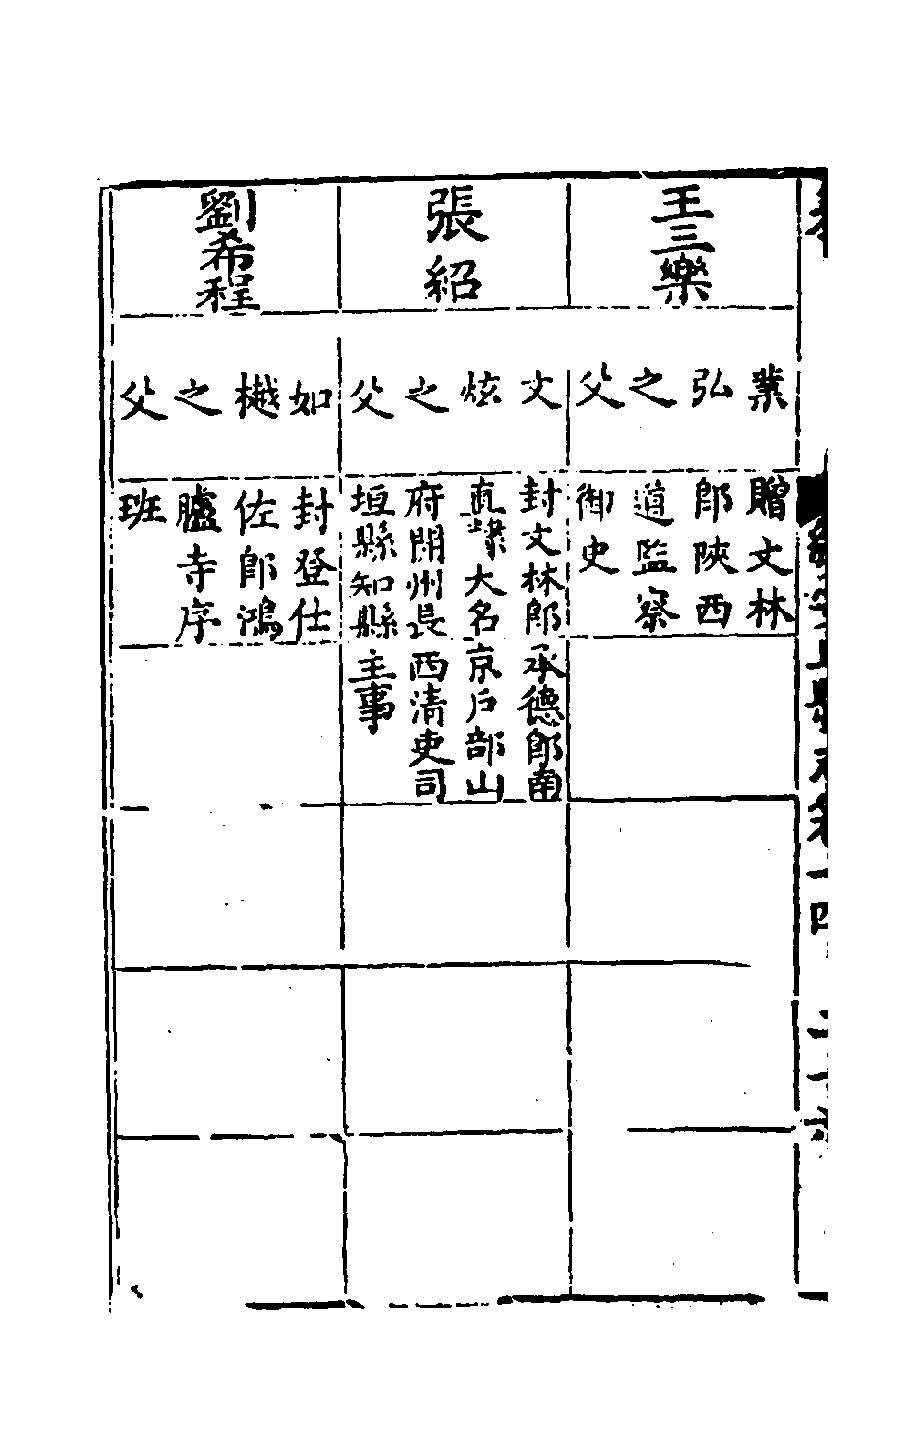 王三樂
業
弘
之
父
贈文林
郎陝西
道監察
御史
張紹
文
炫
之
父
封文林郎
直隸大名
府開州長
垣縣知縣
承德郎南
京戶部山
西清吏司
主事
劉希程
如
樾
之
父
封登仕
佐郎鴻
臚寺序
班